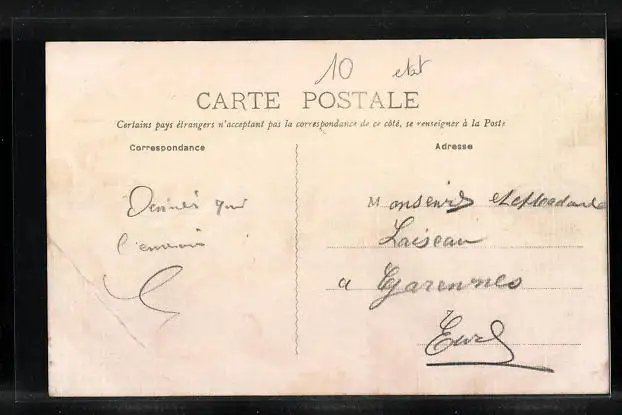 10 etat
CARTE POSTALE
Certains pays étrangers n'acceptant pas la correspondance de ce côté, se renseigner à la Poste
Correspondance
Adresse
Devinés qui
l'envoie
Monsieur et Madame
Loiseau
a Garennes
Eure